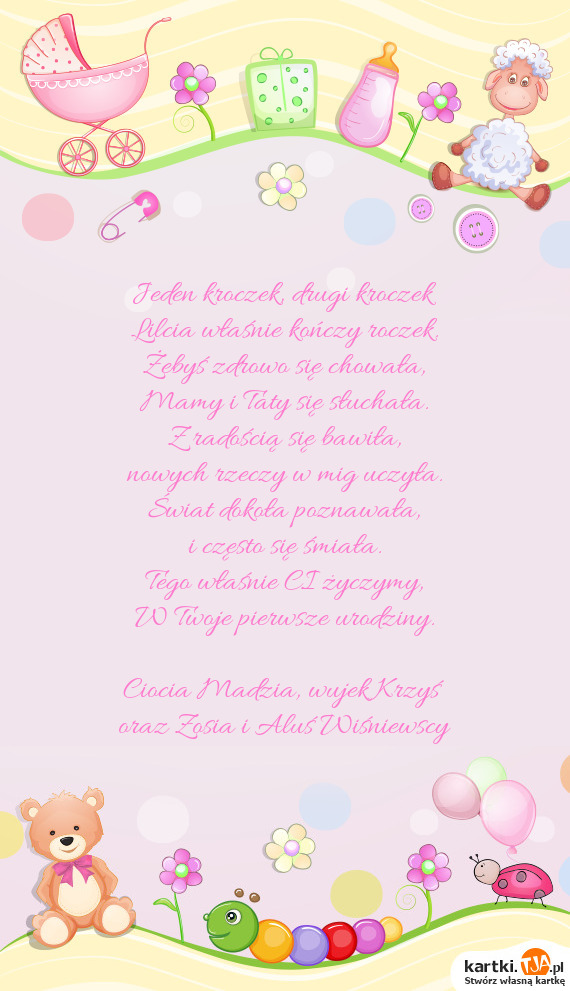 Jeden kroczek, drugi kroczek
Lilcia właśnie kończy roczek.
Żebyś zdrowo się chowała,
Mamy i Taty się słuchała.
Z radością się bawiła,
nowych rzeczy w mig uczyła.
Świat dokoła poznawała,
i często się śmiała.
Tego właśnie CI życzymy,
W Twoje pierwsze urodziny.
Ciocia Madzia, wujek Krzyś
oraz Zosia i Aluś Wiśniewscy
kartki.TJA.pl
Stwórz własną kartkę